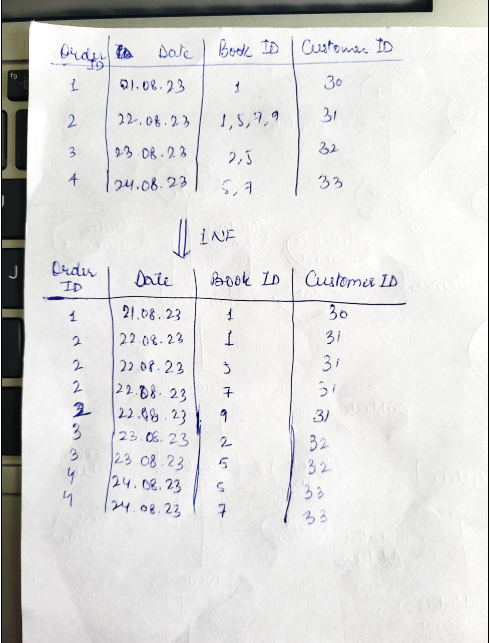 Order ID Date Book ID Customer ID
1 21.08.23 1 30
2 22.08.23 1,5,7,9 31
3 23.08.23 2,5 32
4 24.08.23 5,7 33
1NF
Order ID Date Book ID Customer ID
1 21.08.23 1 30
2 22.08.23 1 31
2 22.08.23 5 31
2 22.08.23 7 31
2 22.08.23 9 31
3 23.08.23 2 32
3 23.08.23 5 32
4 24.08.23 5 33
4 24.08.23 7 33